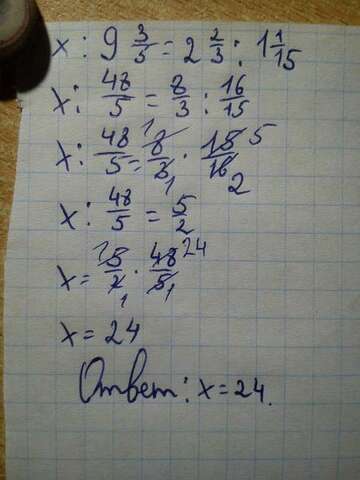 x : 9 3/5 = 2 2/3 : 1 1/15
x : 48/5 = 8/3 : 16/15
x : 48/5 = 8/3 · 15/16 1 1 5 2
x : 48/5 = 5/2
x = 5/2 · 48/5 1 1 24 1
x = 24
Ответ: x = 24.